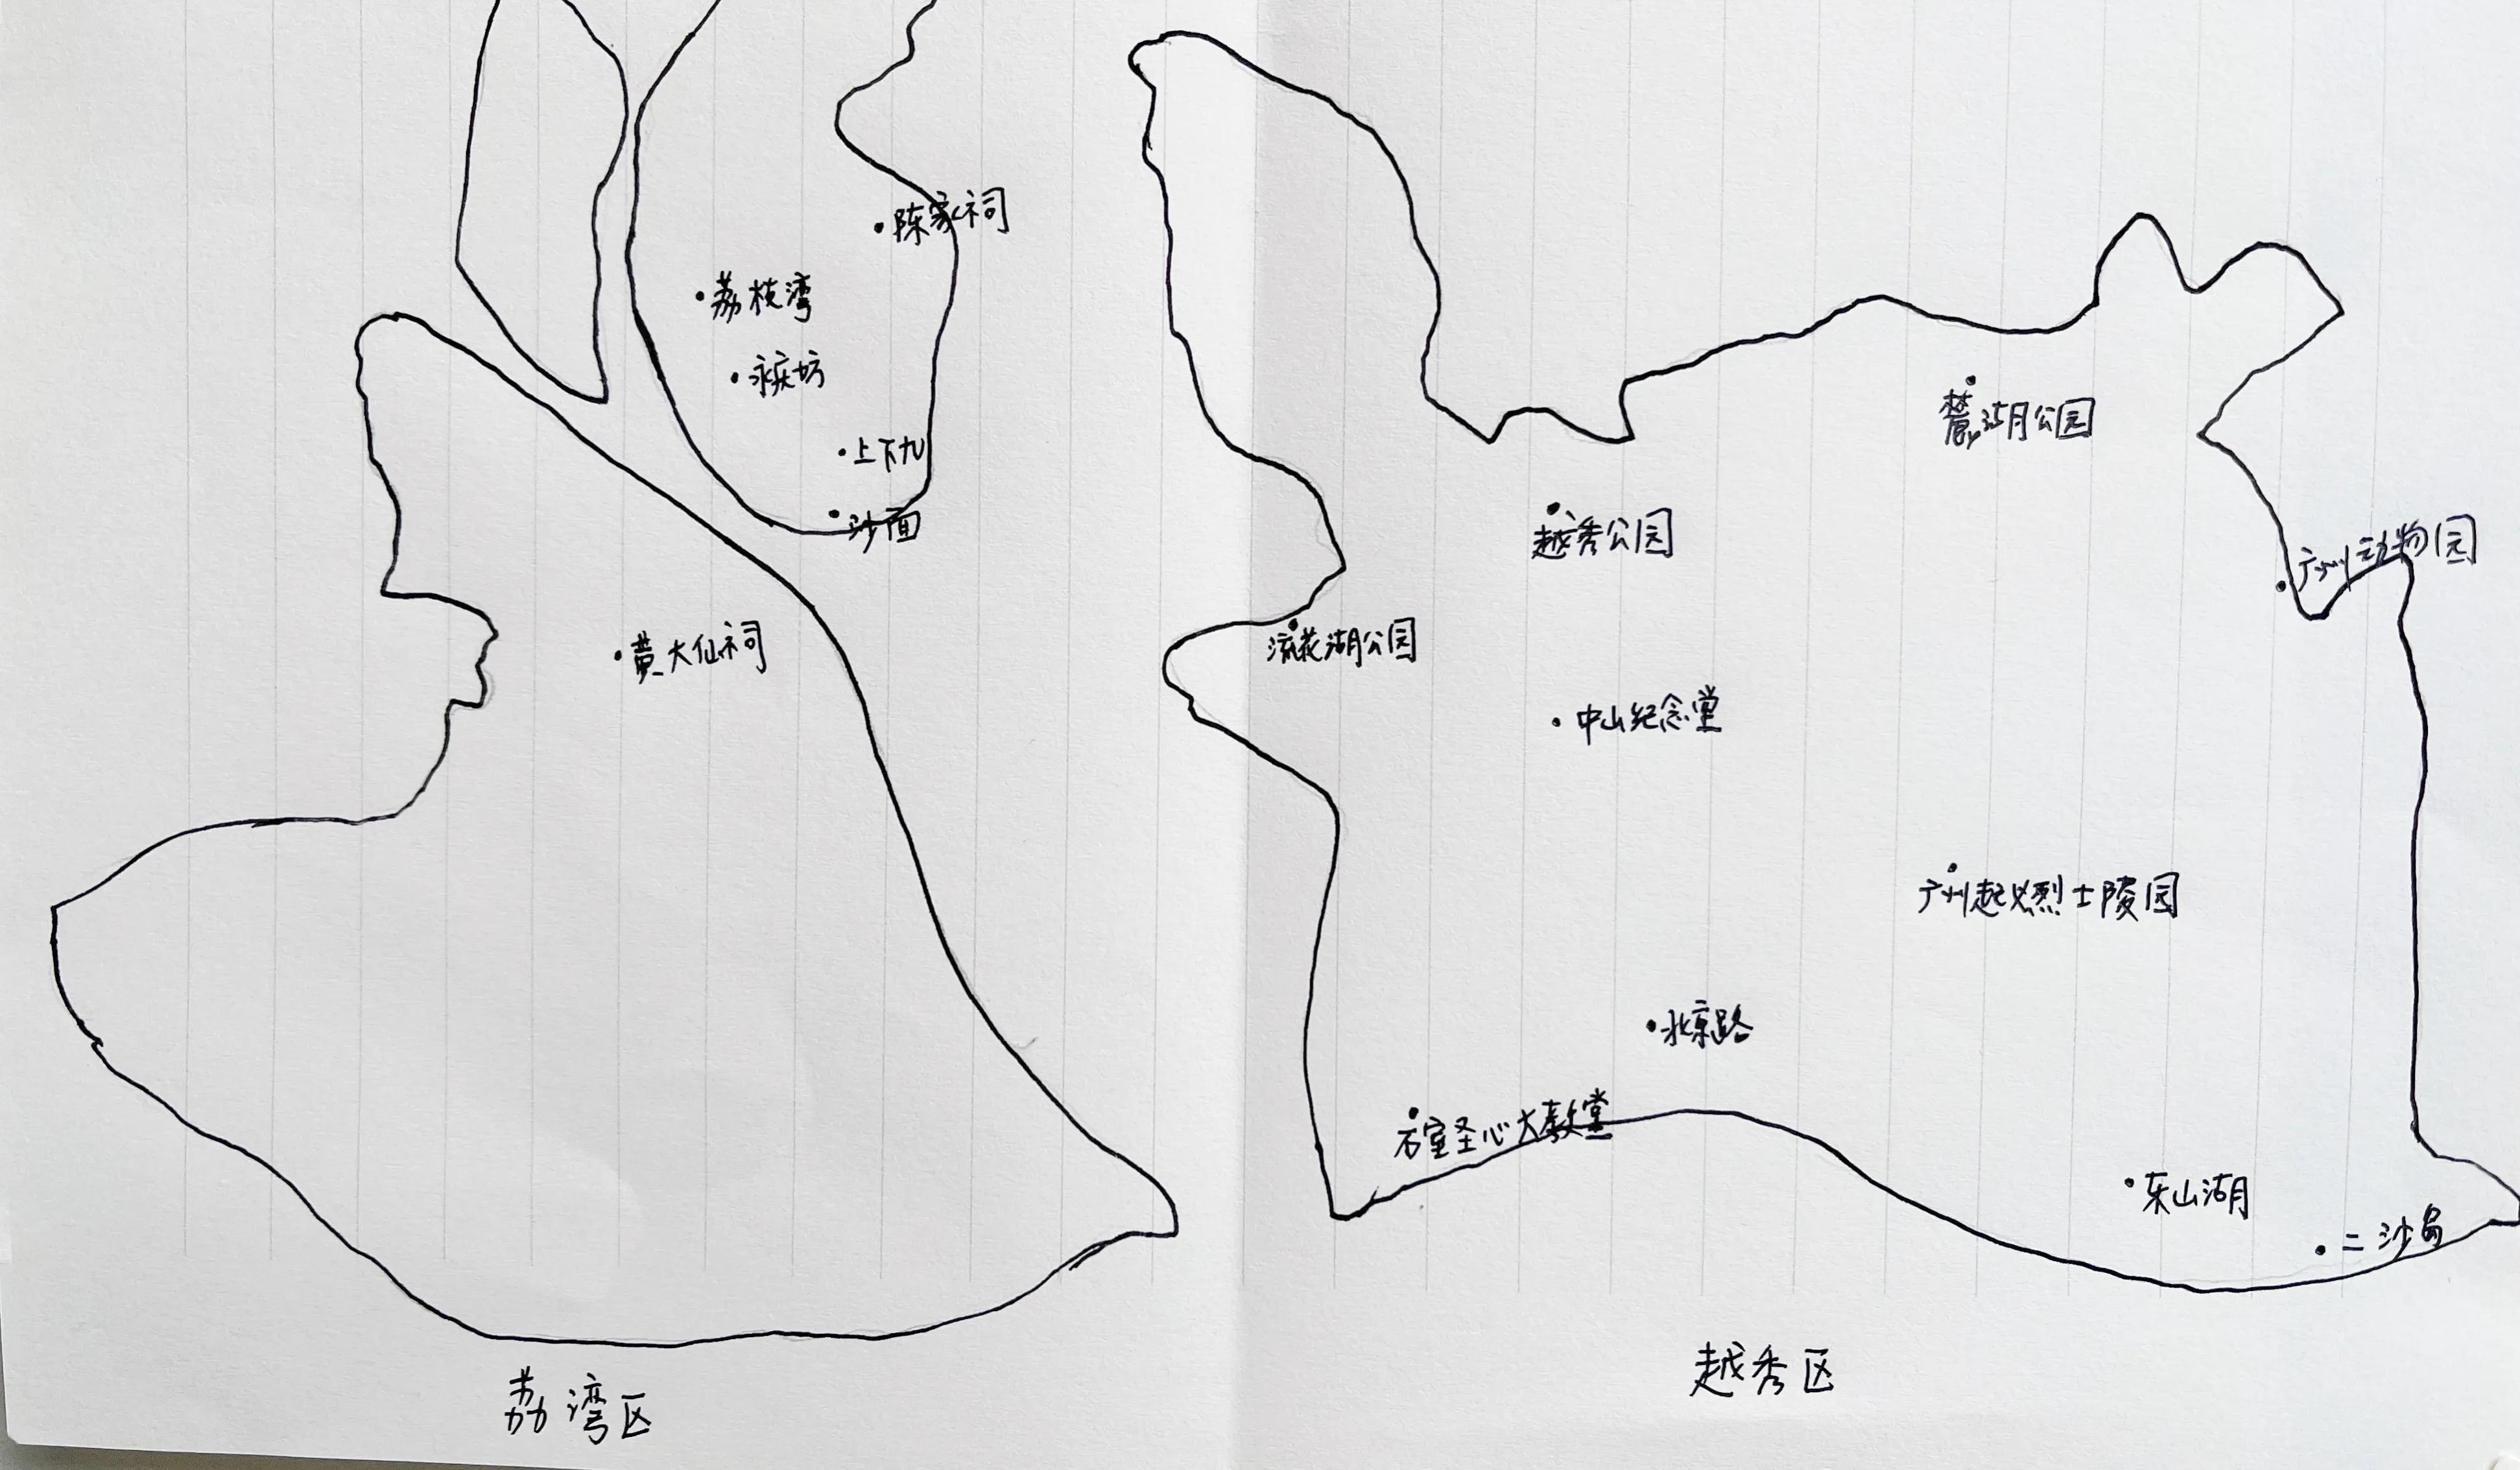 陈家祠
荔枝湾
永庆坊
上下九
沙面
黄大仙祠
荔湾区
麓湖公园
越秀公园
广州动物园
流花湖公园
中山纪念堂
广州起义烈士陵园
北京路
石室圣心大教堂
东山湖
二沙岛
越秀区